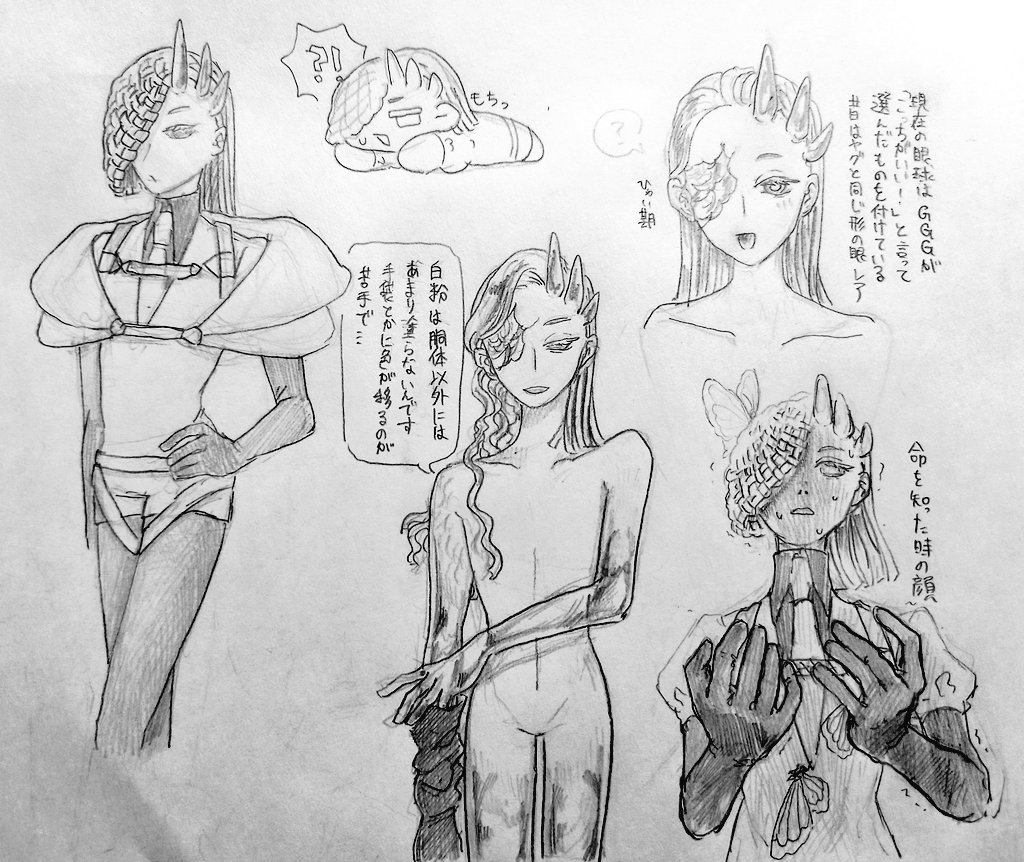 ?!
もちっ
?
現在の眼球は GGGが
「こっちがいい！」と言って
選んだものを付けている
昔はヤグと同じ形の眼
白粉は胴体以外には
あまり塗らないんです
手袋とかに色が移るのが
苦手で…
命を知った時の顔
?